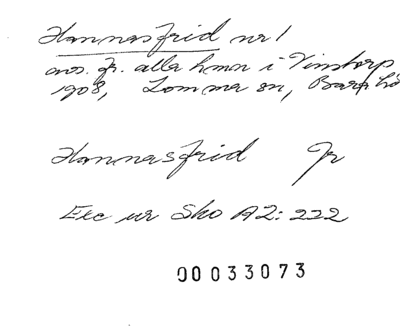 Hannasfrid nr 1
avs. fr. alla hmn i Vinstorp
1908, Lomma sn, Bara hd
Hannasfrid Jr
Exc ur Sko A2: 222
00033073